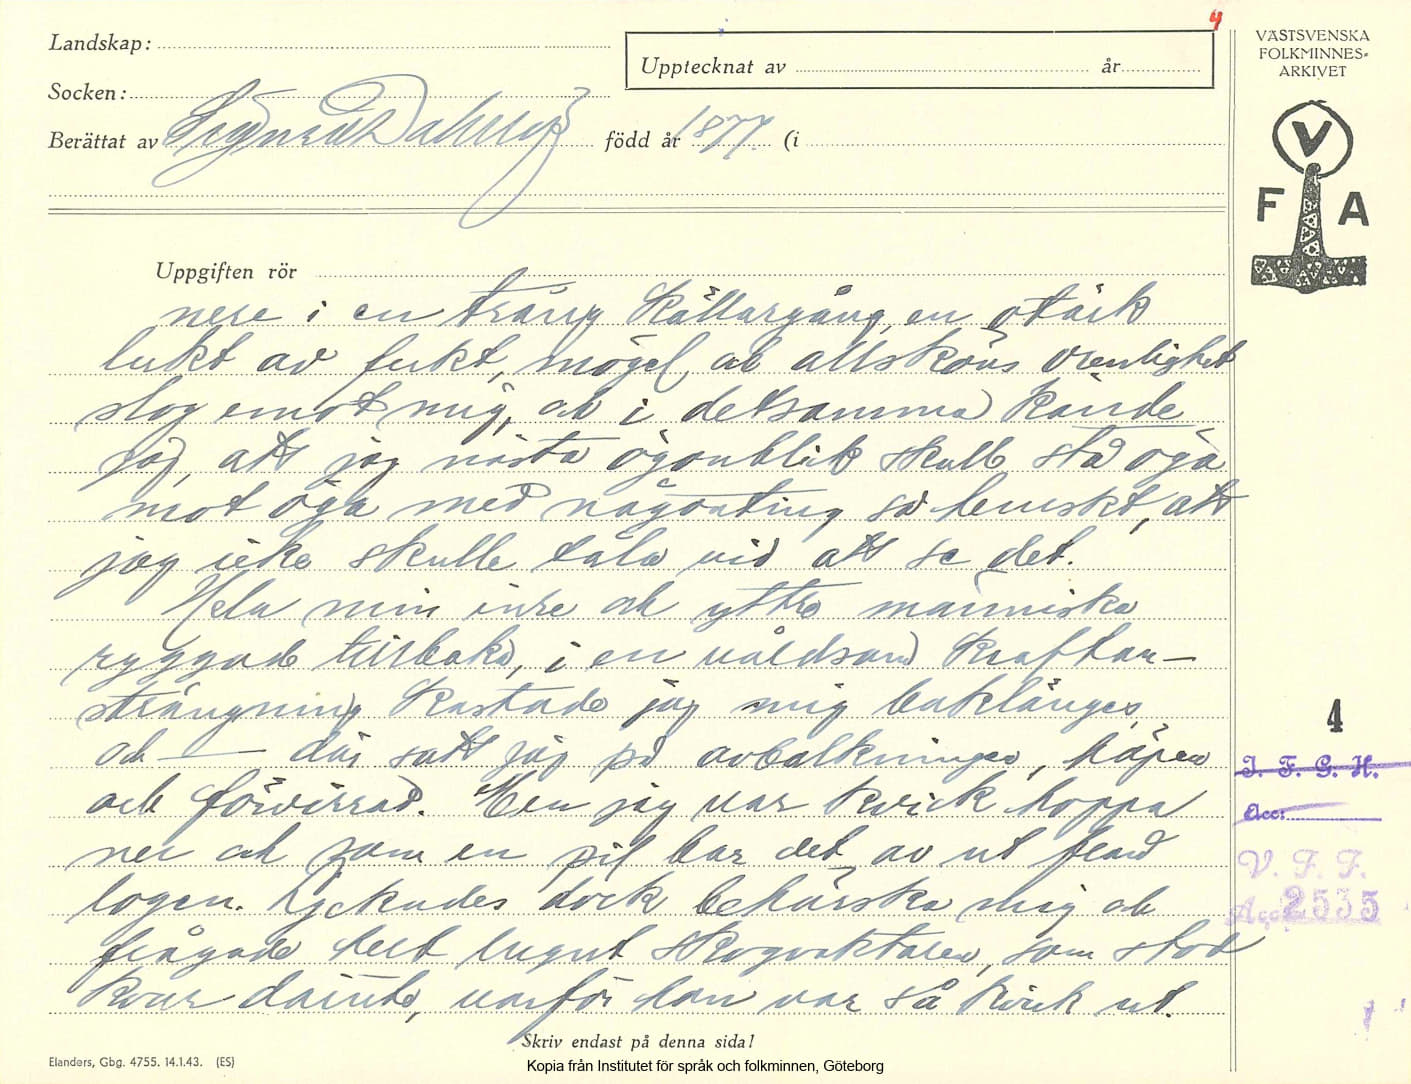 4
Landskap:
Upptecknat av år
VÄSTSVENSKA
FOLKMINNES-
ARKIVET
Socken:
Berättat av född år 1877. (i
V
F A
Uppgiften rör
nere i en trång källargång, en otäck
lukt av fukt, mögel, och allsköns orenlighet
slog emot mig, och i detsamma kände
jag, att jag nästa ögonblick skulle stå öga
mot öga med någonting så hemskt, att
jag icke skulle tåla vid att se det.
Hela min inre och yttre människa
ryggade tillbaka, i en våldsam kraftan-
strängning kastade jag mig baklänges,
och — där satt jag på avbalkningen, häpen
och förvirrad. Men jag var kvick hoppa
ner och som en pil bar det av ut från
logen. Lyckades dock behärska mig och
frågade helt lugnt skogvaktaren, som stod
kvar därute, varför han var så kvick ut.
4
I. F. G. H.
Acc:
V. F. F.
Acc 2535
Skriv endast på denna sida!
Elanders, Gbg. 4755. 14.1.43. (ES)
Kopia från Institutet för språk och folkminnen, Göteborg